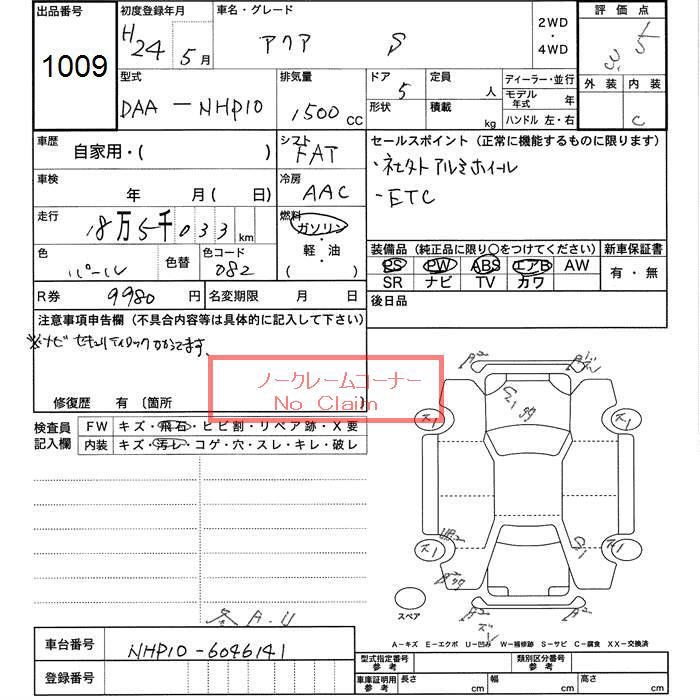 出品番号
1009
初度登録年月
H24年 5月
車名・グレード
アクア S
2WD
・
4WD
評価点
外装 内装
C
型式
DAA-NHP10
排気量
1500 CC
ドア
5
形状
定員
人
積載
kg
ディーラー・並行
モデル年式 年
ハンドル 左・右
車歴
自家用・( )
シフト
FAT
セールスポイント (正常に機能するものに限ります)
・ETC
車検
年 月 ( 日)
冷房
AAC
走行
18万5千033 km
燃料
ガソリン
・
軽・油
( )
色
パール
色替
色コード
082
装備品 (純正品に限り○をつけてください)
PS PW ABS エアB AW
SR ナビ TV カワ
新車保証書
有・無
R券
9980 円
名変期限 月 日
後日品
注意事項申告欄 (不具合内容等は具体的に記入して下さい)
※ナビ セキュリティロックかかってます。
修復歴 有 〔箇所
ノークレームコーナー
No Claim
検査員記入欄
FW キズ・飛石・ヒビ割・リペア跡・X要
内装 キズ・汚レ・コゲ・穴・スレ・キレ・破レ
スペア
A-キズ E-エクボ U-凹み W-補修跡 S-サビ C-腐食 XX-交換済
車台番号
NHP10-6046141
登録番号
型式指定番号 参考
類別区分番号 参考
車庫証明用 参考
長さ cm
幅 cm
高さ cm